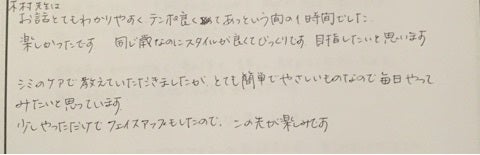 木村先生は
お話とてもわかりやすく テンポ良く あっという間の1時間でした。
楽しかったです 同じ歳なのにスタイルが良くてびっくりです 目指したいと思います
シミのケアで教えていただきましたが、とても簡単でやさしいものなので毎日やって
みたいと思っています。
少しやっただけでフェイスアップもしたので、この先が楽しみです